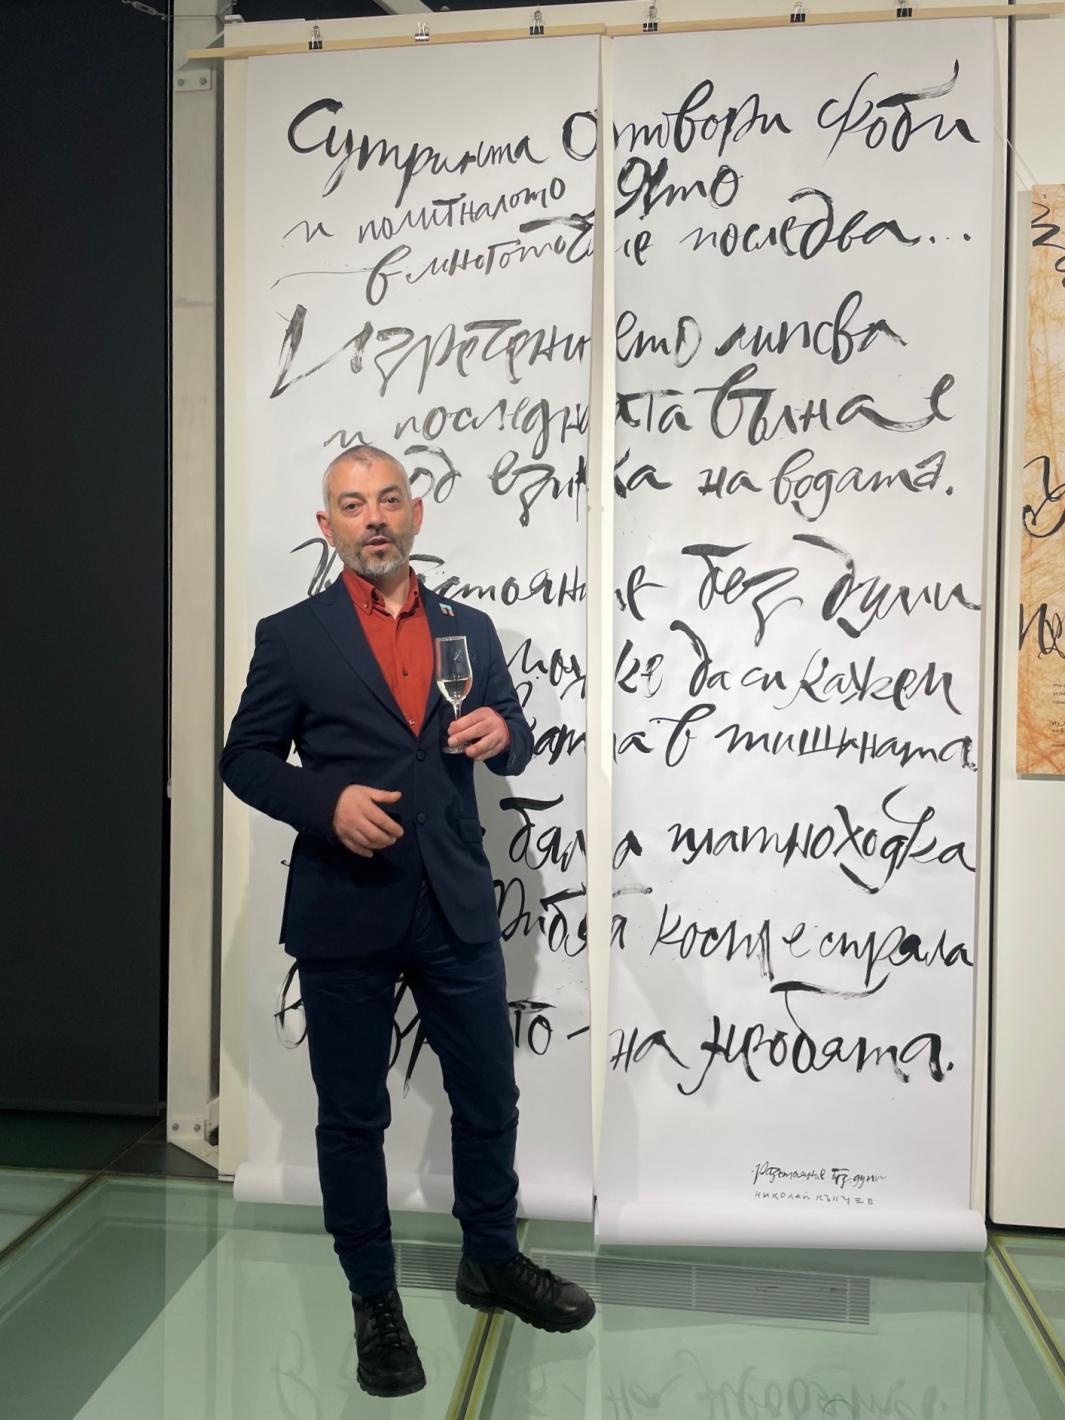 Сутринта отвори скоби
и политналото ято
в многоточие последва...
Изречението липсва
и последната вълна е
езика на водата.
без думи
може да си кажем
в тишината.
бяла платноходка
Рибя кост е спряла
- на небята.
Разстояние без думи
НИКОЛАЙ КЪНЧЕВ